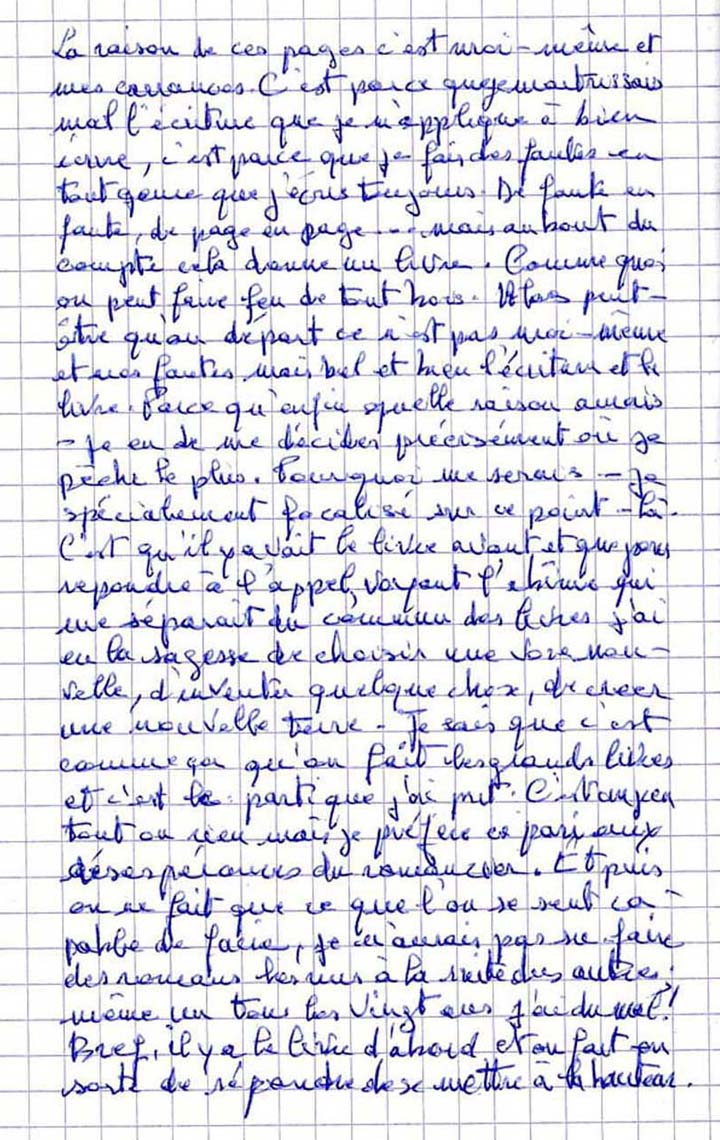 La raison de ces pages c'est moi-même et
mes carrances. C'est parce que je maitrisais
mal l'écriture que je m'applique à bien
écrire, c'est parce que je fais des fautes en
tout genre que j'écris toujours. De faute en
faute, de page en page... mais au bout du
compte cela donne un livre. Comme quoi
on peut faire feu de tout bois. Alors peut-
être qu'au départ ce n'est pas moi-même
et mes fautes mais bel et bien l'écriture et le
livre. Parce qu'enfin quelle raison aurais
-je eu de me décider précisément où je
pèche le plus. Pourquoi me serais-je
spécialement focalisé sur ce point-là.
C'est qu'il y avait le livre avant et que pour
repondre à l'appel, voyant l'abîme qui
me séparait du commun des livres j'ai
eu la sagesse de choisir une voie nou-
velle, d'inventer quelque chose, de creer
une nouvelle terre. Je sais que c'est
comme ça qu'on fait les grands livres
et c'est le parti que j'ai prit. C'est un peu
tout ou rien mais je préfère ce pari aux
désespérances du romancier. Et puis
on ne fait que ce que l'on se sent ca-
pable de faire, je n'aurais pas su faire
des romans les uns à la suite des autres,
même un tous les vingt ans j'ai du mal!
Bref, il y a le livre d'abord et on fait en
sorte de répondre de se mettre à la hauteur.